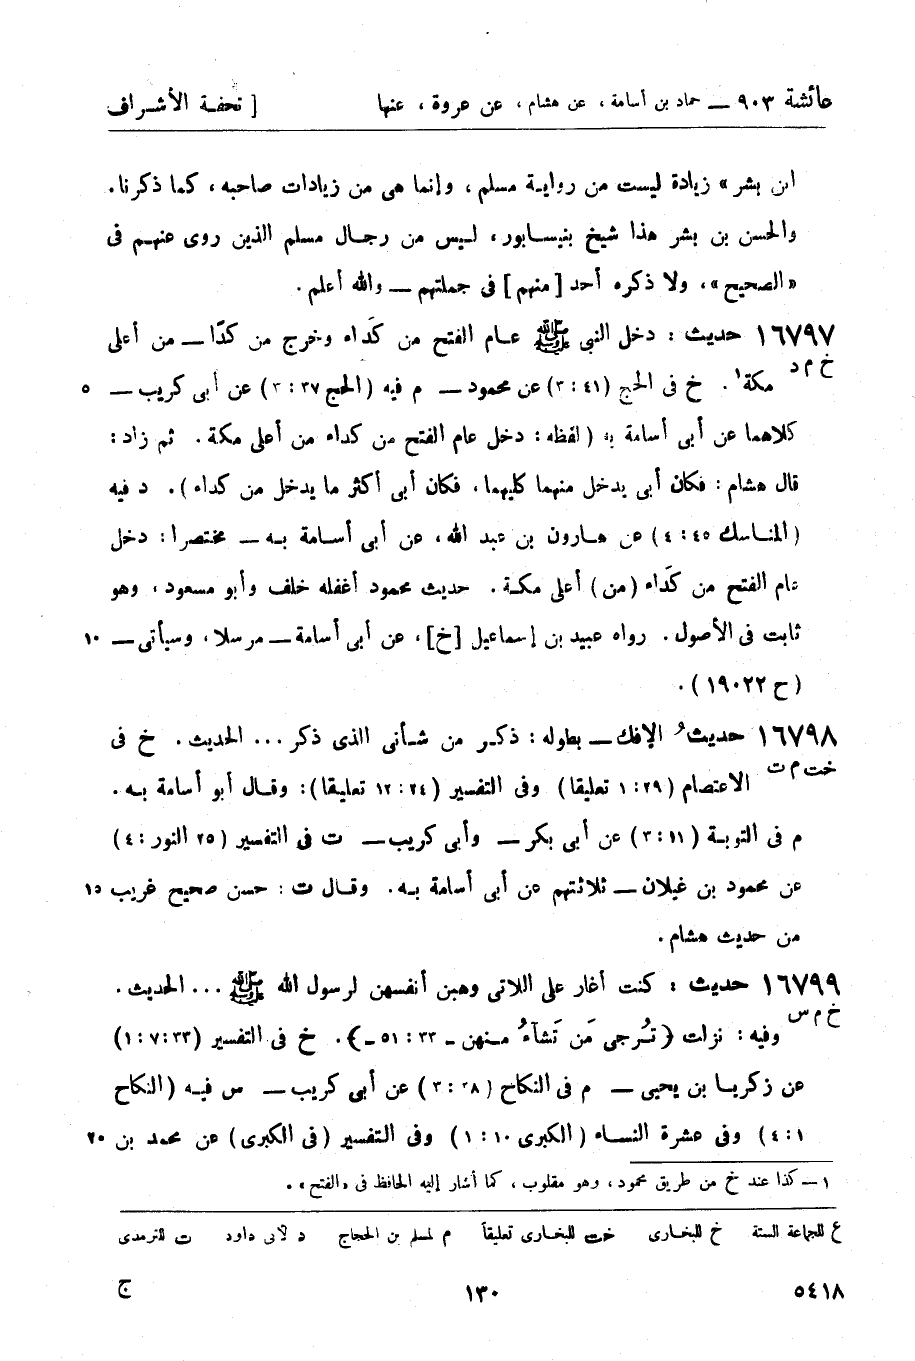 عائشة ٩٠٣ — حماد بن أسامة ، عن هشام ، عن عروة ، عنها [ تحفة الأشراف
ابن بشر » زيادة ليست من رواية مسلم ، وإنما هى من زيادات صاحبه ، كما ذكرنا .
والحسن بن بشر هذا شيخ بنيسابور ، ليس من رجال مسلم الذين روى عنهم فى
« الصحيح » ، ولا ذكره أحد [ منهم ] فى جملتهم — والله أعلم .
١٦٧٩٧ حديث : دخل النبى ﷺ عام الفتح من كَداء وخرج من كدًا — من أعلى
خ م د مكة ١ . خ فى الحج (٤١ : ٣) عن محمود — م فيه (الحج ٣٧ : ٢) عن أبى كريب — ٥
كلاهما عن أبى أسامة به ( لفظه : دخل عام الفتح من كداء من أعلى مكة . ثم زاد :
قال هشام : فكان أبى يدخل منهما كليهما ، فكان أبى أكثر ما يدخل من كداء ) . د فيه
(المناسك ٤٥ : ٤) عن هارون بن عبد الله ، عن أبى أسامة به — مختصرا : دخل
عام الفتح من كَداء (من) أعلى مكة . حديث محمود أغفله خلف وأبو مسعود ، وهو
ثابت فى الأصول . رواه عبيد بن إسماعيل [خ] ، عن أبى أسامة — مرسلا ، وسيأتى — ١٠
(ح ١٩٠٢٢) .
١٦٧٩٨ حديثُ الإفك — بطوله : ذكر من شأنى الذى ذكر ... الحديث . خ فى
خت م ت الاعتصام (٢٩ : ١ تعليقا) وفى التفسير (٢٤ : ١٢ تعليقا) : وقال أبو أسامة به .
م فى التوبة (١١ : ٣) عن أبى بكر — وأبى كريب — ت فى التفسير (٢٥ النور : ٤)
عن محمود بن غيلان — ثلاثتهم عن أبى أسامة به . وقال ت : حسن صحيح غريب ١٥
من حديث هشام .
١٦٧٩٩ حديث : كنت أغار على اللاتى وهبن أنفسهن لرسول الله ﷺ ... الحديث .
خ م س وفيه : نزلت ﴿ تُرجى مَن تَشآءُ منهن - ٣٣ : ٥١ -﴾ . خ فى التفسير (٣٣ : ٧ : ١)
عن زكريا بن يحيى — م فى النكاح ( : ٣) عن أبى كريب — س فيه (النكاح
١ : ٤) وفى عشرة النساء (الكبرى ١٠ : ١) وفى التفسير (فى الكبرى) عن محمد بن ٢٠
١ — كذا عند خ من طريق محمود ، وهو مقلوب ، كما أشار إليه الحافظ فى «الفتح» .
ع للجماعة الستة خ للبخارى خت للبخارى تعليقاً م لمسلم بن الحجاج د لأبى داود ت للترمذى
٥٤١٨ ١٣٠ ج